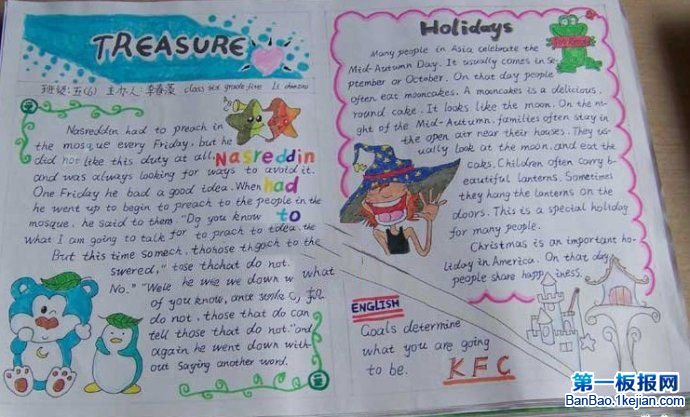 TREASURE
班级:五(6) 主办人:李春藻 class six grade five
Nasreddin had to preach in
the mosque every Friday, but he
did not like this duty at all,
and was always looking for ways to avoid it.
One Friday he had a good idea. When
he went up to begin to preach to the people in the
mosque, he said to them "Do you know
what I am going to talk for to prach to idea. the
But this time
swered," tose do not.
No." "Wele he we down w what
of you know,
do not, those that do can
tell those that do not." and
again he went down with-
out saying another word.
Nasreddin
had
to
Holidays
Many people in Asia celebrate the
Mid-Autumn Day. It usually comes in Se-
ptember or October. On that day people
often eat mooncakes. A mooncakes is a delicious,
round cake. It looks like the moon. On the ni-
ght of the Mid-Autumn, families often stay in
the open air near their houses. They us-
ually look at the moon, and eat the
caks. Children often carry b-
eautiful lanterns. Sometimes
they hang the lanterns on the
doors. This is a special holiday
for many people.
Christmas is an important ho-
liday in America. On that day
people share happiness.
ENGLISH
Goals determine
what you are going
to be.
KFC
第一板报网
BanBao.1kejian.com